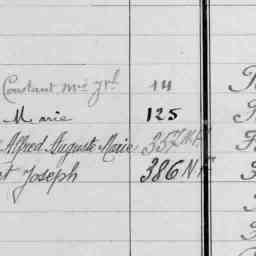 Constant Mie Jh 14
Marie 125
Alfred Auguste Marie 357
t Joseph 386 N